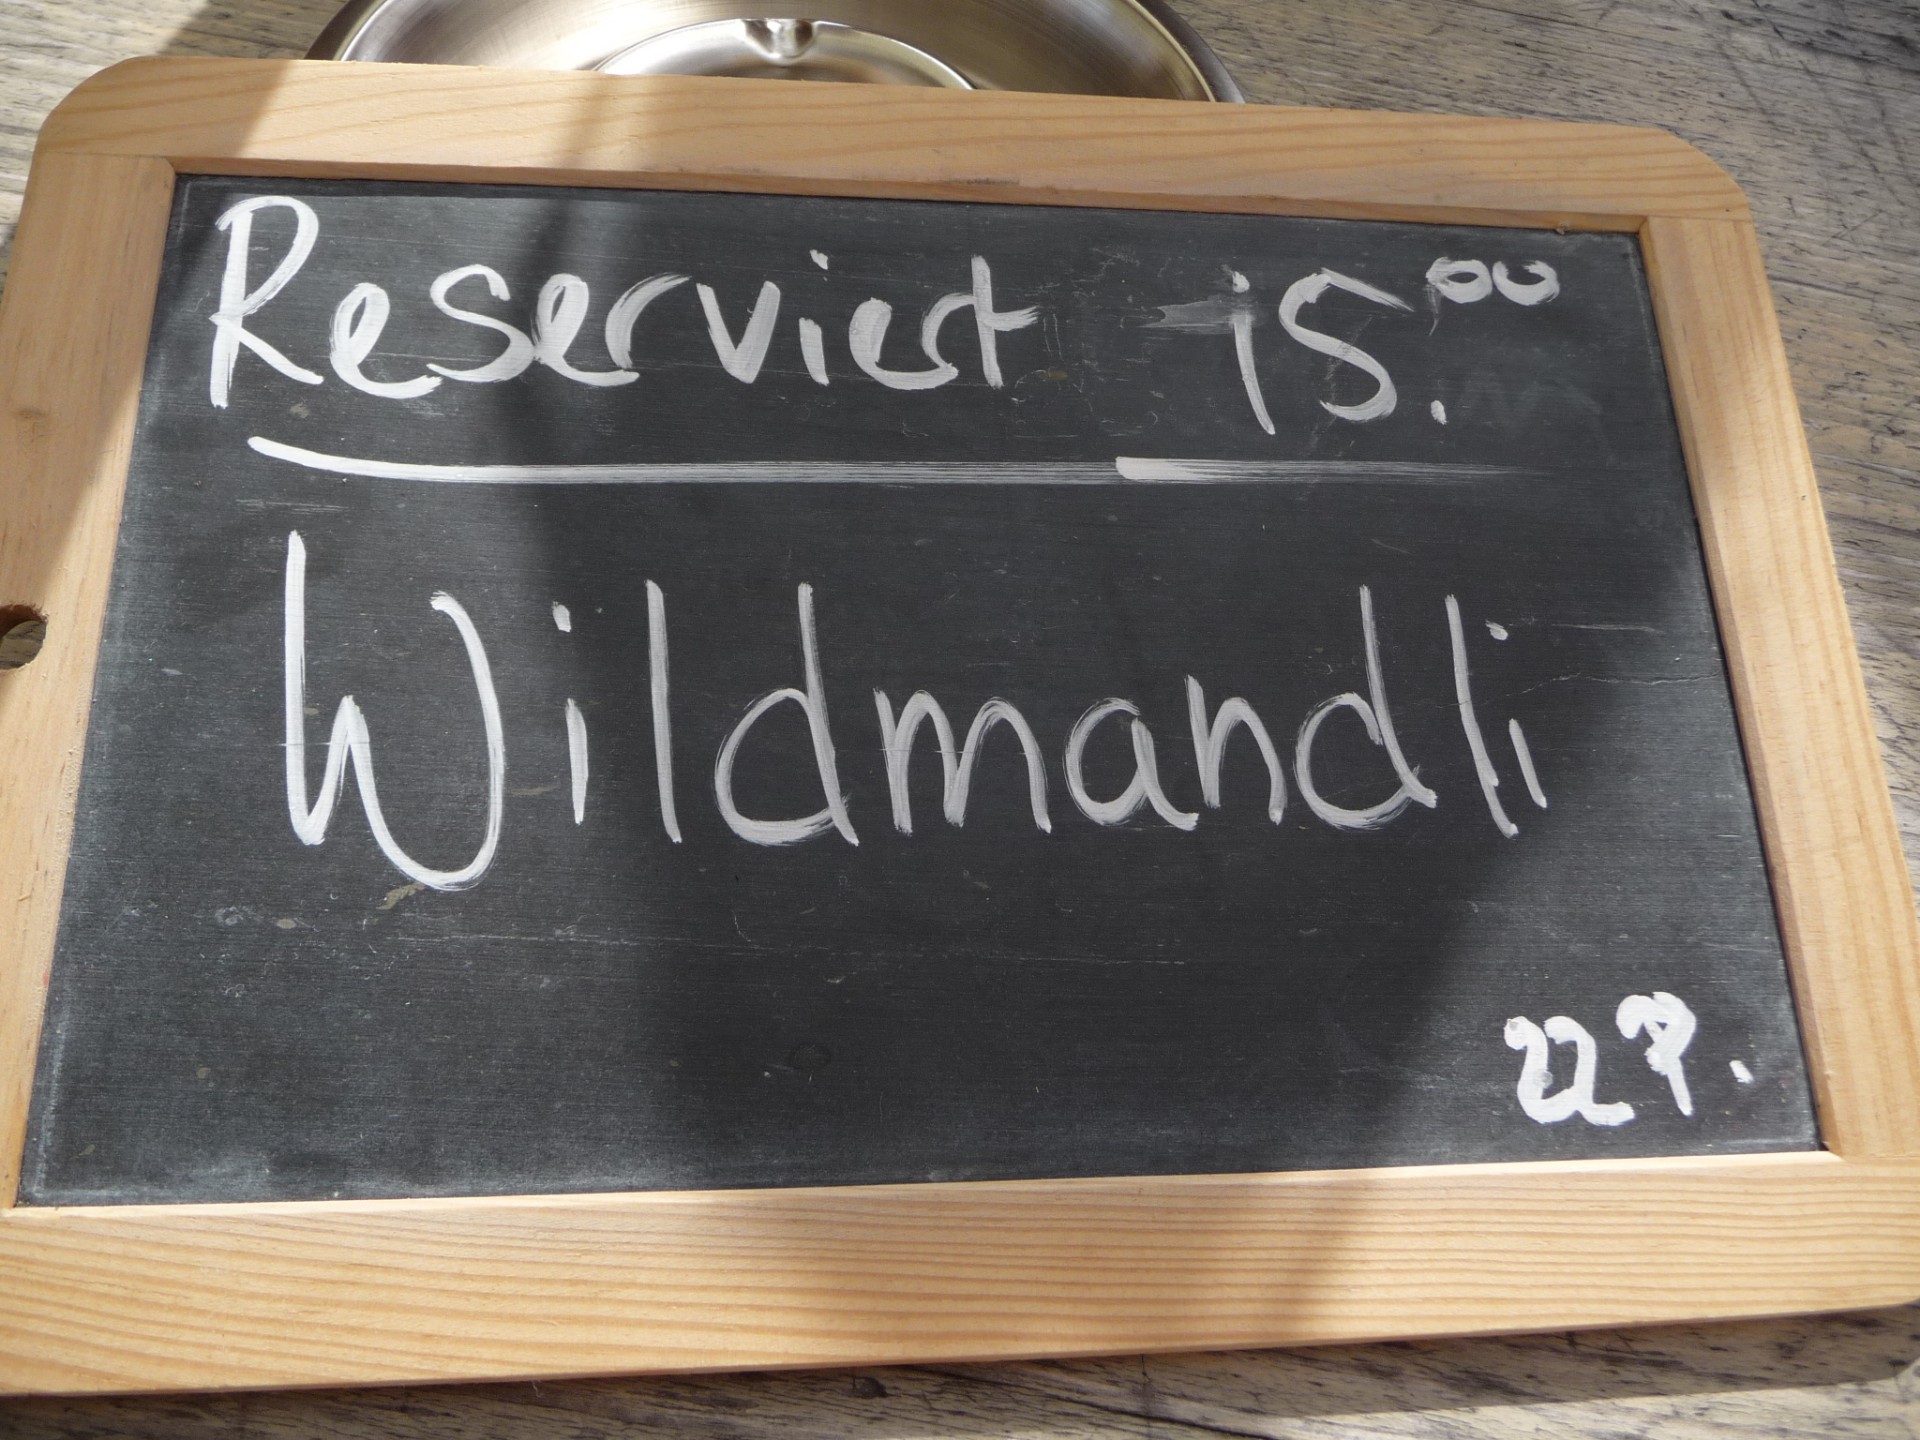 Reserviert 15.00
Wildmandli
22 P.